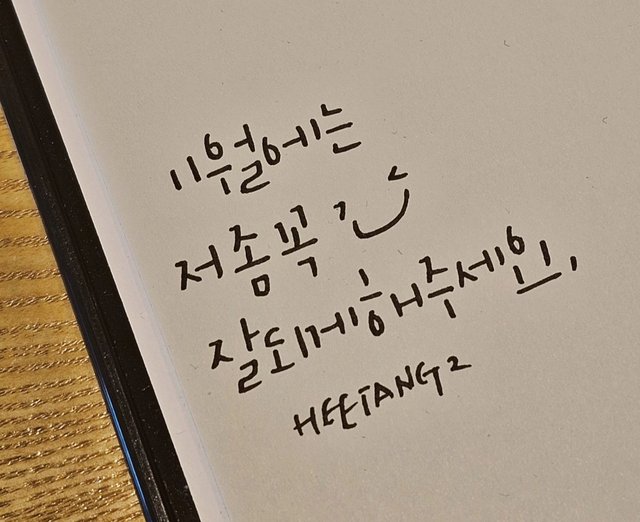 11월에는
저좀꼭
잘되게해주세요,
HEEJANG2